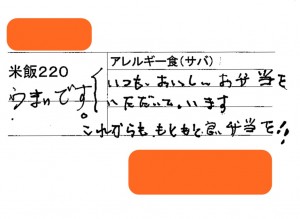 米飯220
アレルギー食(サバ)
うまいです。
いつも、おいしいお弁当を
いただいています
これからも、もともと 弁当を!!